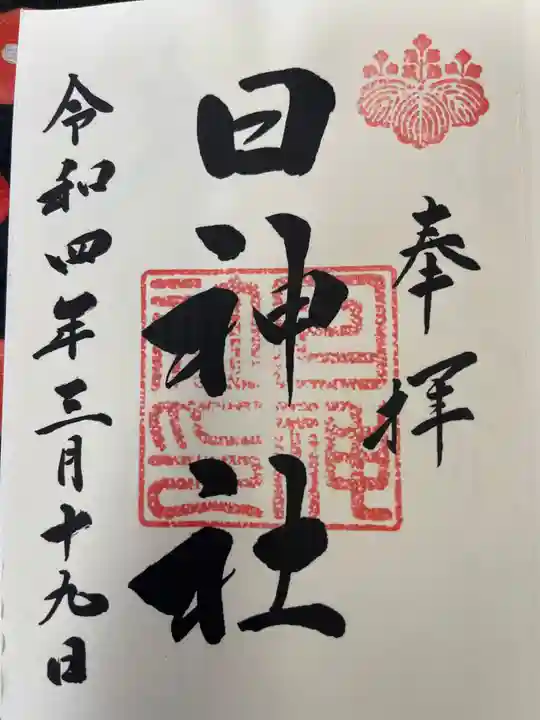 奉拝
日神社
令和四年三月十九日